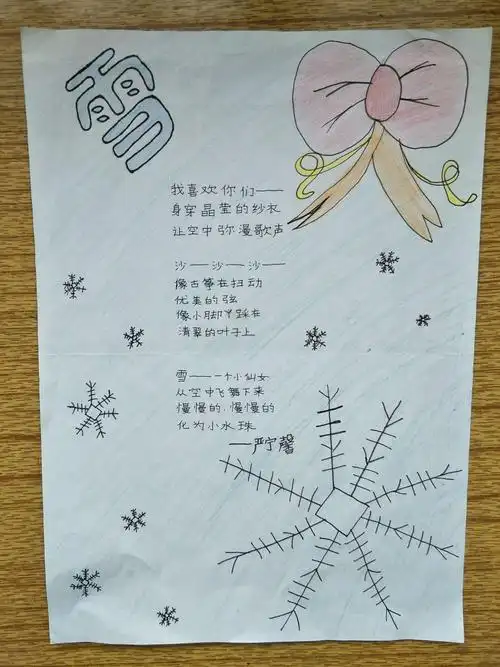 雪
我喜欢你们——
身穿晶莹的纱衣
让空中弥漫歌声
沙—沙—沙—
像古筝在扫动
优美的弦
像小脚丫踩在
清翠的叶子上
雪——一个小仙女
从空中飞舞下来
慢慢的，慢慢的
化为小水珠
——严宁馨